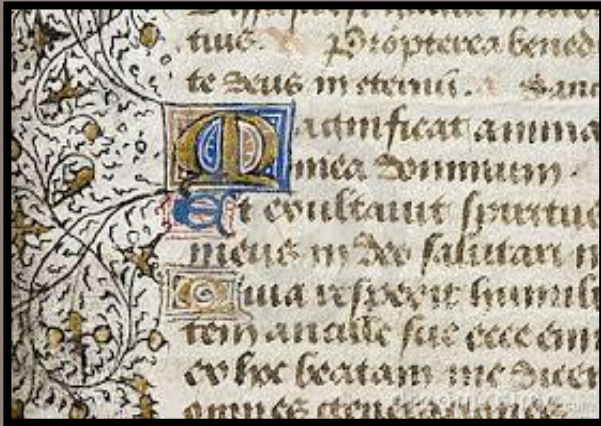 tuus. Propterea bened
te deus in eternū. Sanc
Magnificat anima
mea dominum.
Et exultauit spiritus
meus in deo salutari m
Quia respexit humili
tem ancille sue ecce enim
ex hoc beatam me dicen
omnes generationes